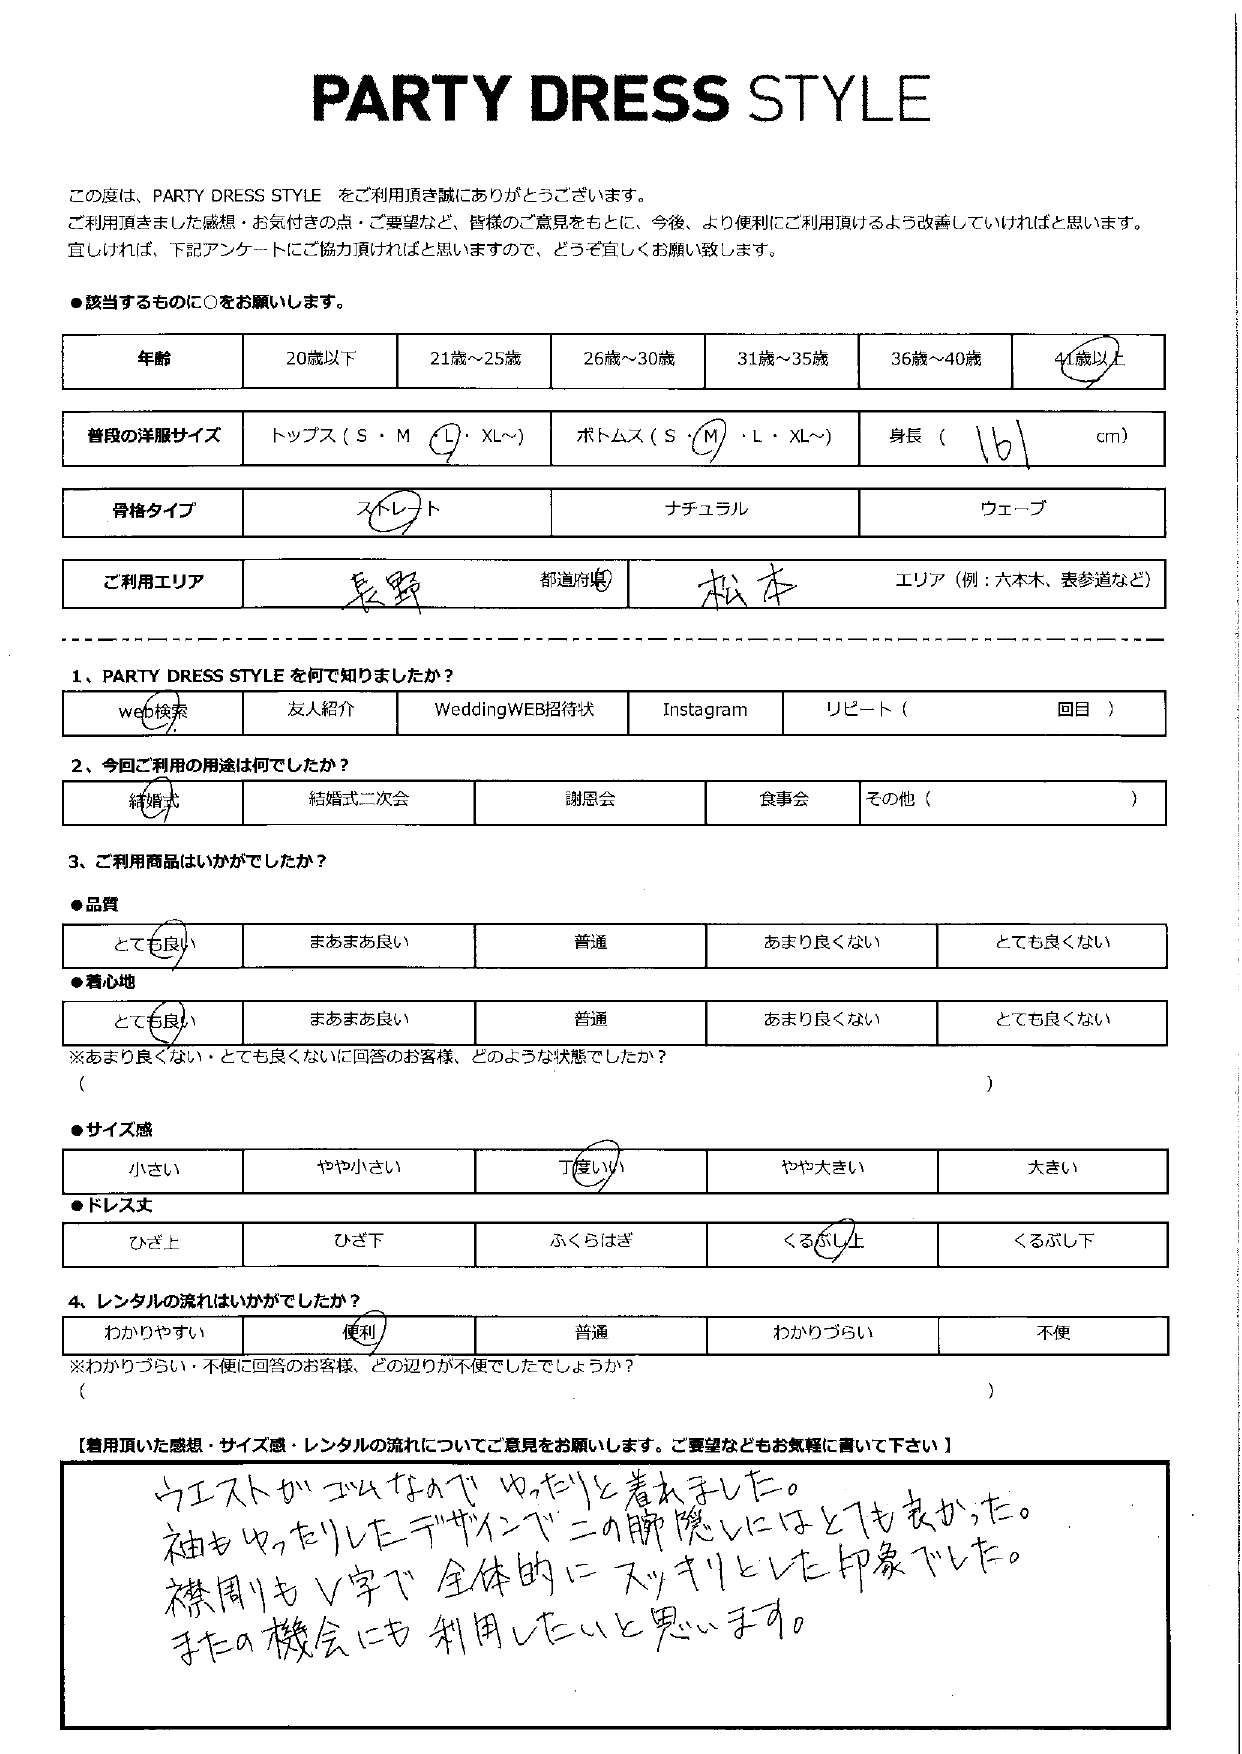 PARTY DRESS STYLE
この度は、PARTY DRESS STYLE をご利用頂き誠にありがとうございます。
ご利用頂きました感想・お気付きの点・ご要望など、皆様のご意見をもとに、今後、より便利にご利用頂けるよう改善していければと思います。
宜しければ、下記アンケートにご協力頂ければと思いますので、どうぞ宜しくお願い致します。
●該当するものに○をお願いします。
年齢 20歳以下 21歳～25歳 26歳～30歳 31歳～35歳 36歳～40歳 41歳以上
普段の洋服サイズ トップス ( S ・ M ・L・ XL～) ボトムス ( S ・M ・L ・ XL～) 身長 ( 161 cm)
骨格タイプ ストレート ナチュラル ウェーブ
ご利用エリア 長野 都道府県 松本 エリア（例：六本木、表参道など）
1、PARTY DRESS STYLE を何で知りましたか？
web検索 友人紹介 WeddingWEB招待状 Instagram リピート（ 回目 ）
2、今回ご利用の用途は何でしたか？
結婚式 結婚式二次会 謝恩会 食事会 その他（ ）
3、ご利用商品はいかがでしたか？
●品質
とても良い まあまあ良い 普通 あまり良くない とても良くない
●着心地
とても良い まあまあ良い 普通 あまり良くない とても良くない
※あまり良くない・とても良くないに回答のお客様、どのような状態でしたか？
（ ）
●サイズ感
小さい やや小さい 丁度いい やや大きい 大きい
●ドレス丈
ひざ上 ひざ下 ふくらはぎ くるぶし上 くるぶし下
4、レンタルの流れはいかがでしたか？
わかりやすい 便利 普通 わかりづらい 不便
※わかりづらい・不便に回答のお客様、どの辺りが不便でしたでしょうか？
（ ）
【着用頂いた感想・サイズ感・レンタルの流れについてご意見をお願いします。ご要望などもお気軽に書いて下さい 】
ウエストがゴムなので ゆったりと着れました。
袖もゆったりしたデザインで二の腕隠しにはとても良かった。
襟周りもV字で 全体的にスッキリとした印象でした。
またの機会にも利用したいと思います。